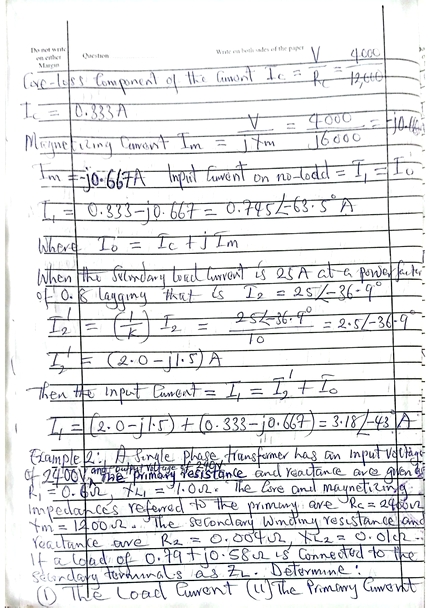 Do not write
on either
Margin
Question
Write on both sides of the paper
Core-loss Component of the Current Ic = V/Rc = 4000/12,000
Ic = 0.333A
Magnetizing Current Im = V/jXm = 4000/j6000 = -j0.
Im = -j0.667A Input Current on no-load = I1 = Io
I1 = 0.333-j0.667 = 0.745∠-63.5° A
Where Io = Ic + jIm
When the Secondary load Current is 25A at a power factor
of 0.8 lagging that is I2 = 25∠-36.9°
I2' = (1/k) I2 = 25∠-36.9°/10 = 2.5∠-36.9°
I2' = (2.0-j1.5) A
Then the input Current = I1 = I2' + Io
I1 = (2.0-j1.5) + (0.333-j0.667) = 3.18∠-43° A
Example 2: A Single phase transformer has an input voltage
and output voltage of 240V
of 2400V, The primary resistance and reactance are given as
R1 = 0.6Ω, XL1 = 1.0Ω. The Core and magnetizing
Impedances referred to the primary are Rc = 2400Ω
Xm = 1200Ω. The secondary winding resistance and
reactance are R2 = 0.004Ω, XL2 = 0.01Ω.
If a load of 0.79+j0.58Ω is connected to the
Secondary terminals as ZL. Determine:
(i) The Load Current (ii) The Primary Current